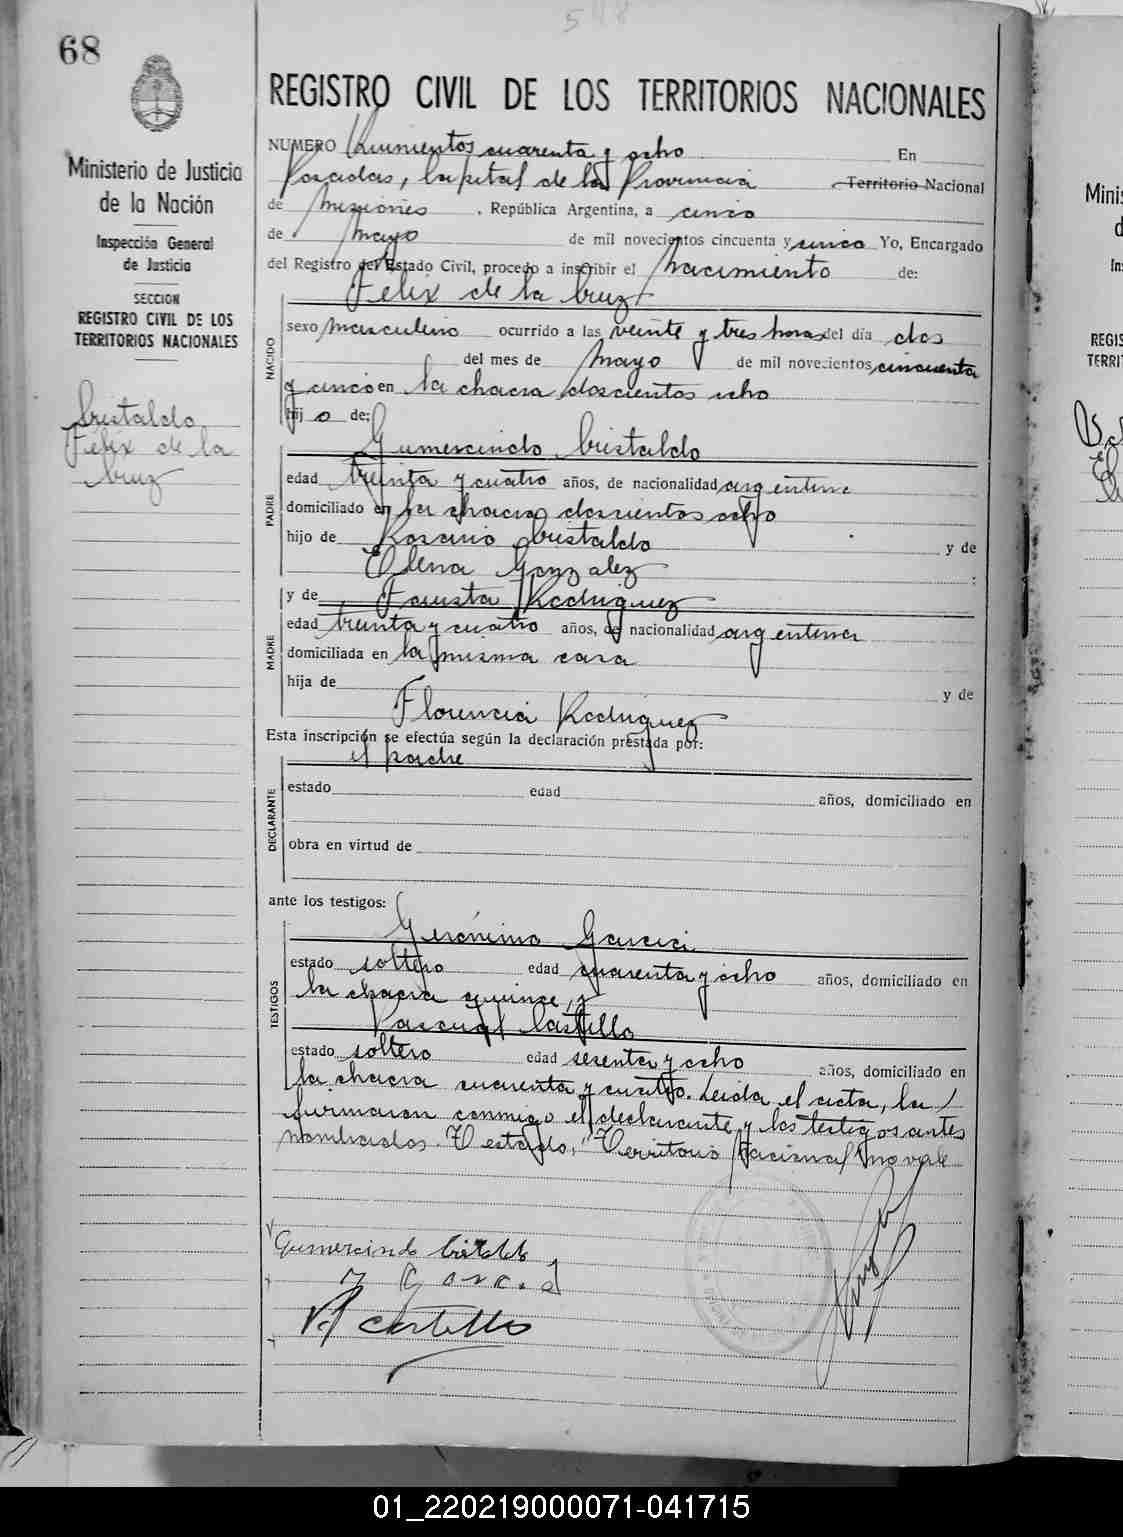 548
68
REGISTRO CIVIL DE LOS TERRITORIOS NACIONALES
Ministerio de Justicia
de la Nación
Inspección General
de Justicia
SECCION
REGISTRO CIVIL DE LOS
TERRITORIOS NACIONALES
Cristaldo
Félix de la
Cruz
NUMERO Quinientos cuarenta y ocho En
Posadas, Capital de la Provincia Territorio Nacional
de Misiones, República Argentina, a cinco
de Mayo de mil novecientos cincuenta y cinco Yo, Encargado
del Registro del Estado Civil, procedo a inscribir el Nacimiento de:
Félix de la Cruz
NACIDO
sexo masculino ocurrido a las veinte y tres horas del día dos
del mes de Mayo de mil novecientos cincuenta
y cinco en la chacra doscientos ocho
hijo de:
Gumercindo Cristaldo
PADRE
edad treinta y cuatro años, de nacionalidad argentina
domiciliado en la chacra doscientos ocho
hijo de Rosario Cristaldo y de
Elena Gonzalez :
y de Fausta Rodriguez
MADRE
edad treinta y cuatro años, de nacionalidad argentina
domiciliada en la misma casa
hija de y de
Florencia Rodriguez
Esta inscripción se efectúa según la declaración prestada por:
el padre
DECLARANTE
estado edad años, domiciliado en
obra en virtud de
ante los testigos:
Gerónimo Garcia
TESTIGOS
estado soltero edad cuarenta y ocho años, domiciliado en
la chacra quince, y
Pascual Castillo
estado soltero edad sesenta y ocho años, domiciliado en
la chacra cuarenta y cuatro. Leida el acta, la
firmaron conmigo el declarante y los testigos antes
nombrados. Testado: "Territorio Nacional" no vale
Gumercindo Cristaldo
P. Castillo
Minis
d
In
REGIS
TERRI
01_220219000071-041715